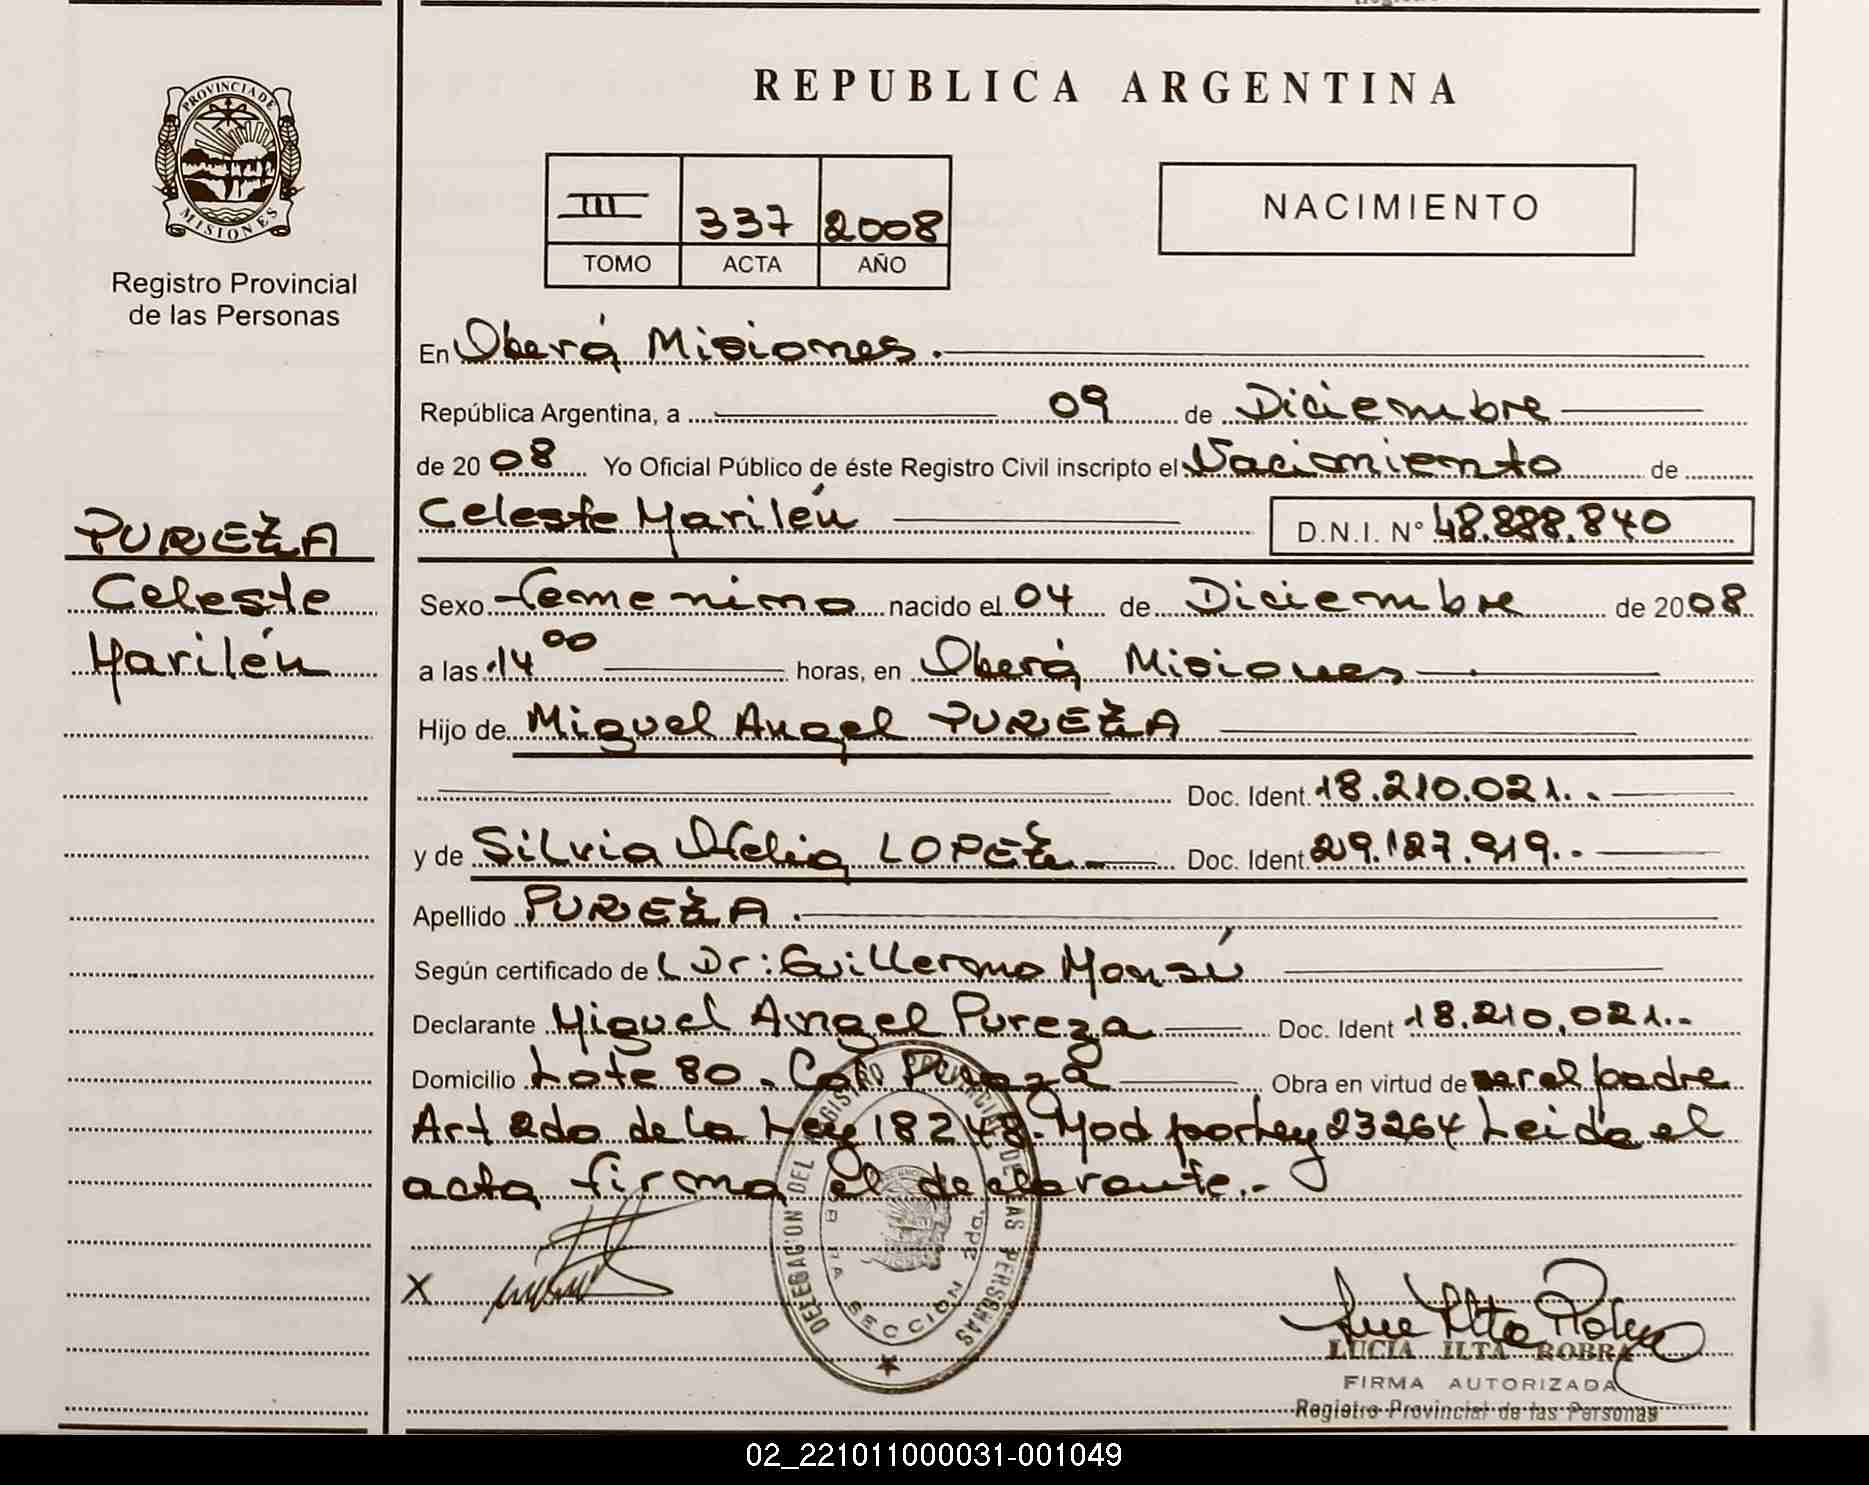 REPUBLICA ARGENTINA
PROVINCIA DE
MISIONES
Registro Provincial
de las Personas
III 337 2008
TOMO ACTA AÑO
NACIMIENTO
En Oberá Misiones.
República Argentina, a 09 de Diciembre
de 2008 Yo Oficial Público de éste Registro Civil inscripto el Nacimiento de
Celeste Marilén D.N.I. N° 48.888.840
PUREZA
Celeste
Marilén
Sexo Femenino nacido el 04 de Diciembre de 2008
a las 14 00 horas, en Oberá Misiones
Hijo de Miguel Angel PUREZA
Doc. Ident. 18.210.021.-
y de Silvia Nelia LOPEZ Doc. Ident. 29.127.919.-
Apellido PUREZA.
Según certificado de Dr: Guillermo Monzú
Declarante Miguel Angel Pureza Doc. Ident 18.210.021.-
Domicilio Lote 80. Obra en virtud de ser el padre
Art 2do de la Ley 18248. Mod por Ley 23264 Leida el
acta firma el declarante.-
X
DELEGACION DEL REGISTRO PROVINCIAL DE LAS PERSONAS
SECCION
LUCIA ILTA ROBRA
FIRMA AUTORIZADA
Registro Provincial de las Personas
02_221011000031-001049